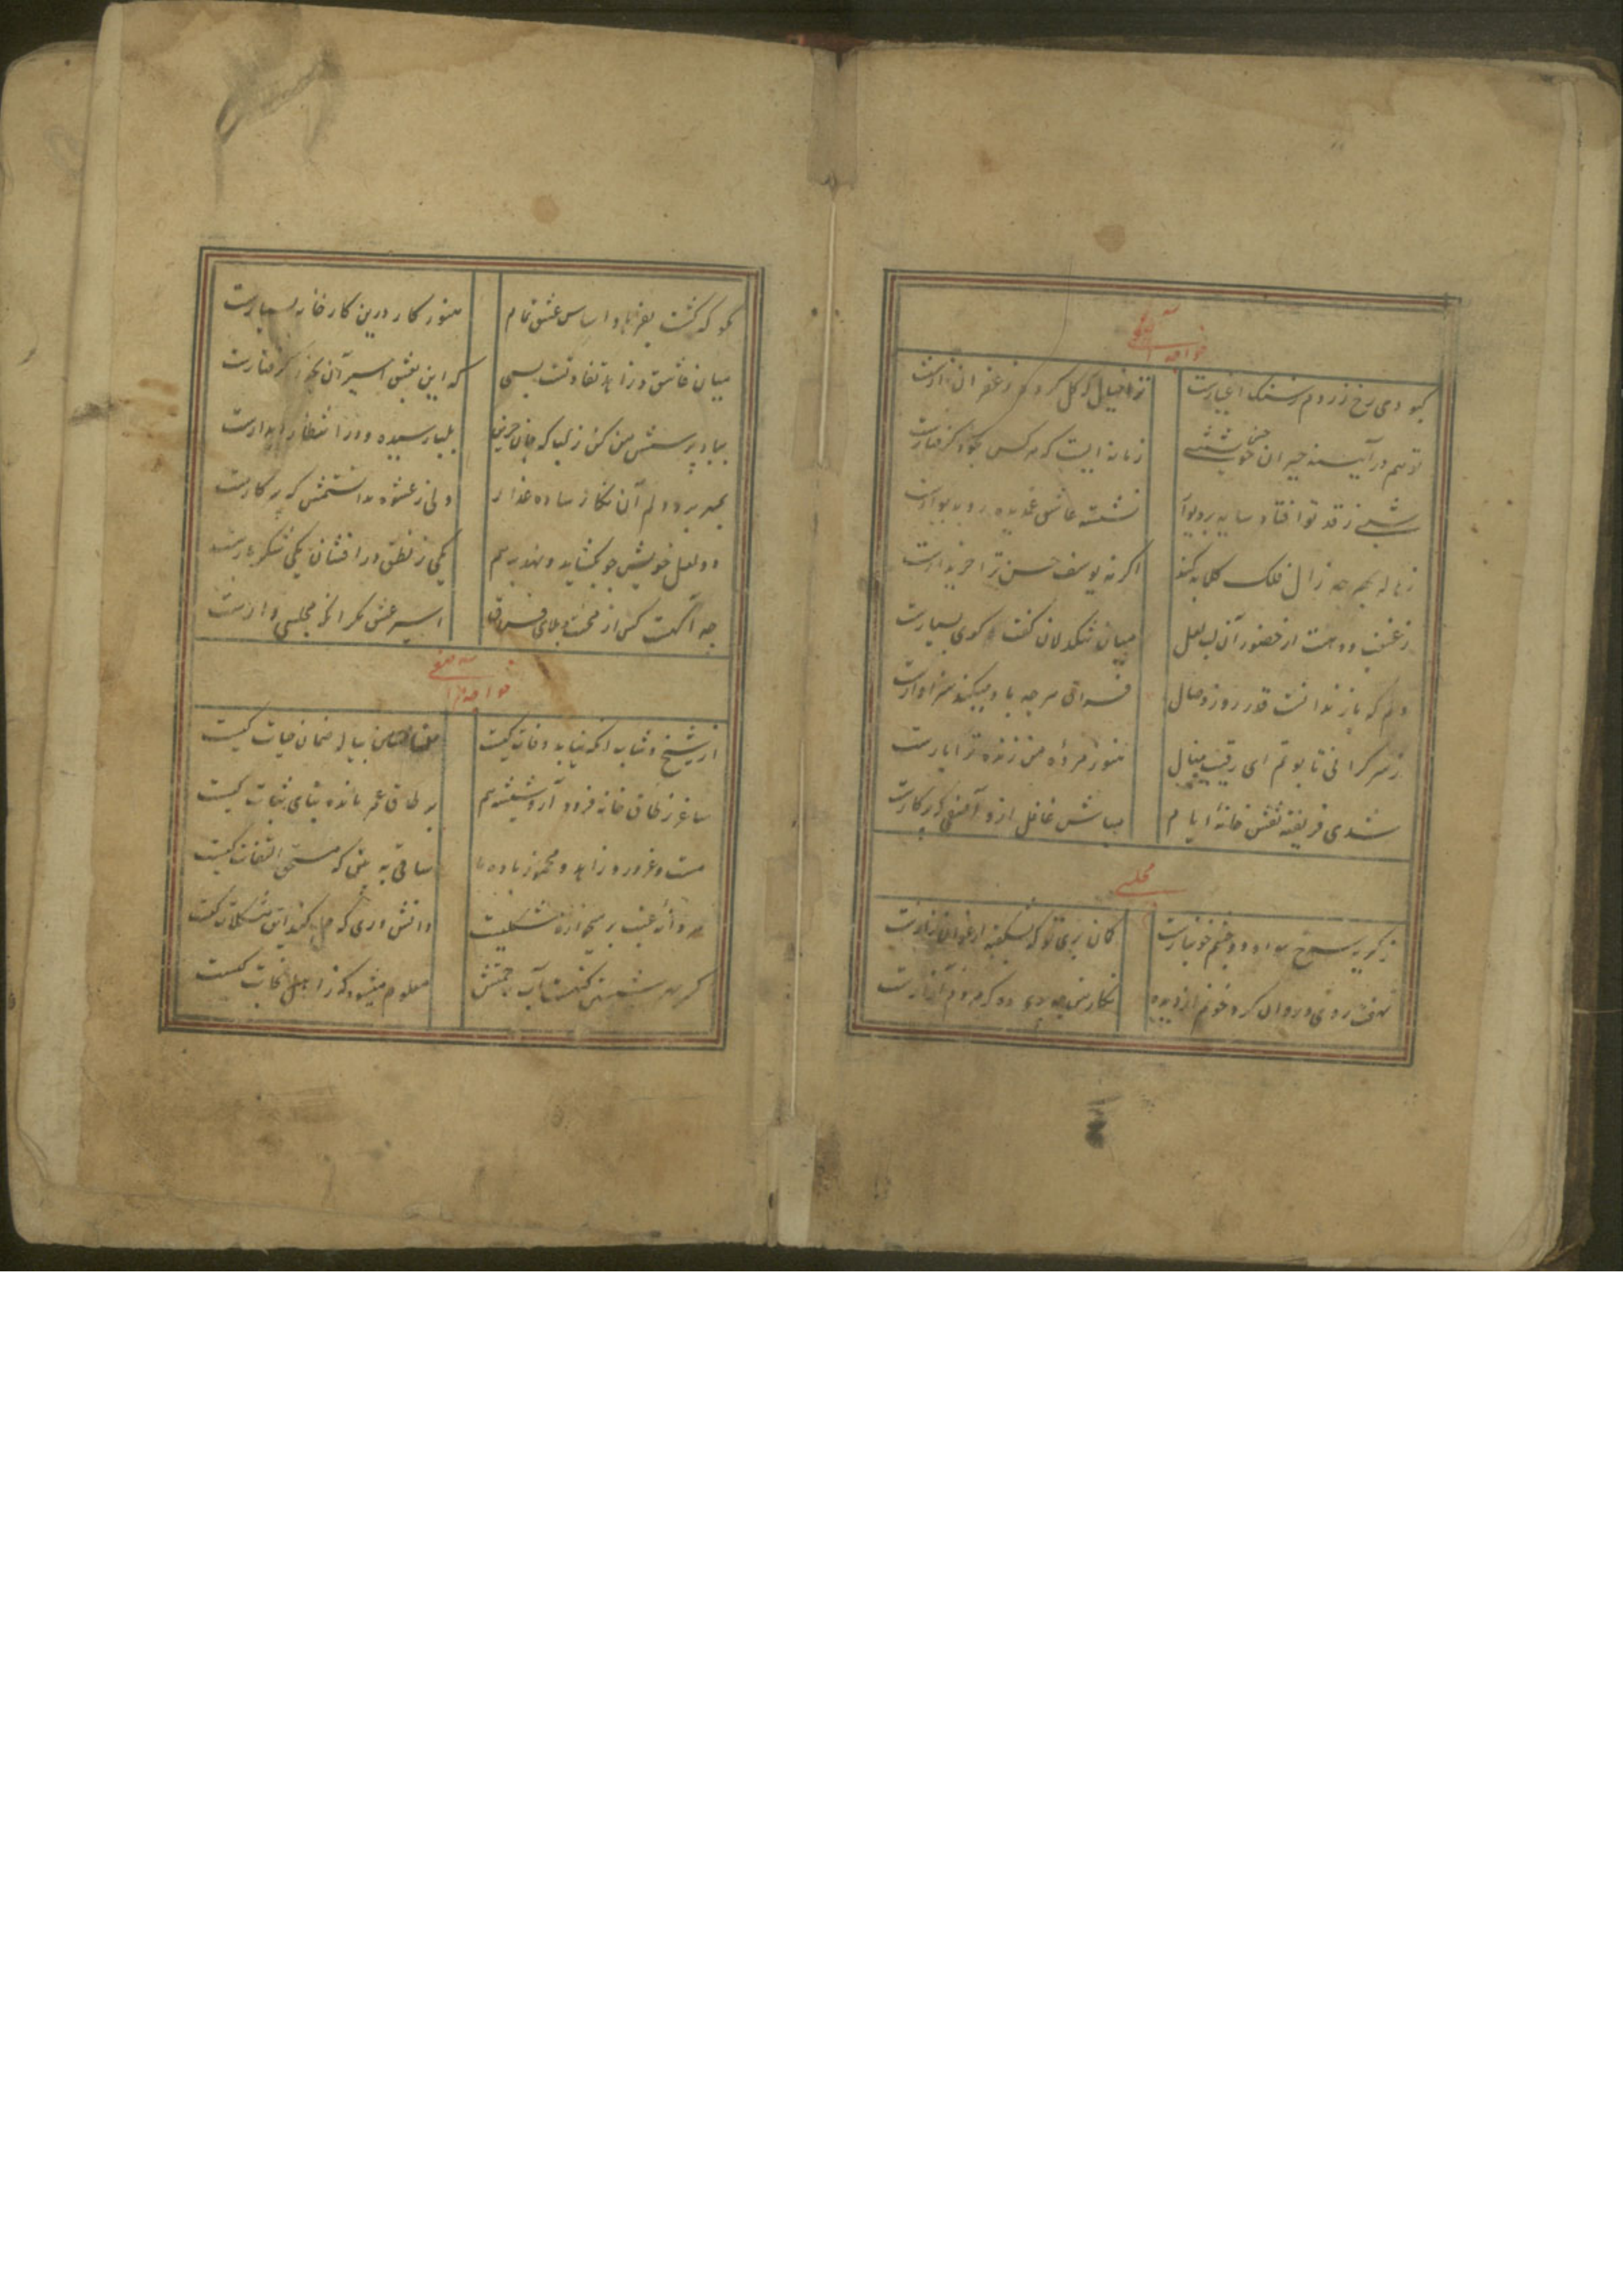 خواجه آصفی
کبودی رخ زردم ز سنگ اغیارست
ترا خیال که گل کرد زعفران زارست
تو هم در آینه حیران حسن خویشتنی
زمانه ایست که هر کس بخود گرفتارست
شبی ز قد تو افتاد سایه بر دیوار
نشسته عاشق غمدیده رو بدیوارست
زهاله بهر چه زال فلک کلابه کند
اگر نه یوسف حسن ترا خریدارست
میان سنگدلان گفت و گوی بسیارست
دلم که باز ندانست قدر روز وصال
فراق هرچه باو میکند سزاوارست
ز سرگرانی تابوتم ای رقیب منال
هنوز مرده من زنده ترا بارست
شدی فریفته نقش خانه ایام
مباش غافل ازو آصفی که پرکارست
مجلسی
ز گریه سرخ مرا دو چشم خونبارست
گمان بری تو که بشکفته ارغوان زارست
نهفت روی و روان کرد خونم از دیده
مگو که گشت بفرهاد اساس عشق تمام
هنوز کار درین کارخانه بسیارست
میان عاشق و زاهد تفاوتست بسی
که این بعشق اسیر آن بخود گرفتارست
بیا و پرسش من کن ز لب که جان حزین
بلب رسیده و در انتظار دیدارست
بمهر برد دلم آن نگار ساده عذار
ولی ز عشوه ندانستمش که پرکارست
دو لعل خویش چو بگشاید و نهد بر هم
یکی ز نطق در افشان یکی شکربارست
چه آگهست کس از محنت و بلای فراق
اسیر عشق مگر آنکه مجلسی وارست
خواجه آصفی
از شیخ و شاب آنکه نیابد وفات کیست
پیاله ضمان حیات کیست
ساغر ز طاق خانه فرود آر و شیشه هم
بر طاق عمر مانده بنای ثبات کیست
مست غرور زاهد و مخمور باده ما
ساقی به بین که مستحق التفات کیست
دانشوری که حل کند این مشکلات کیست
معلوم میشود که ز اهل نجات کیست